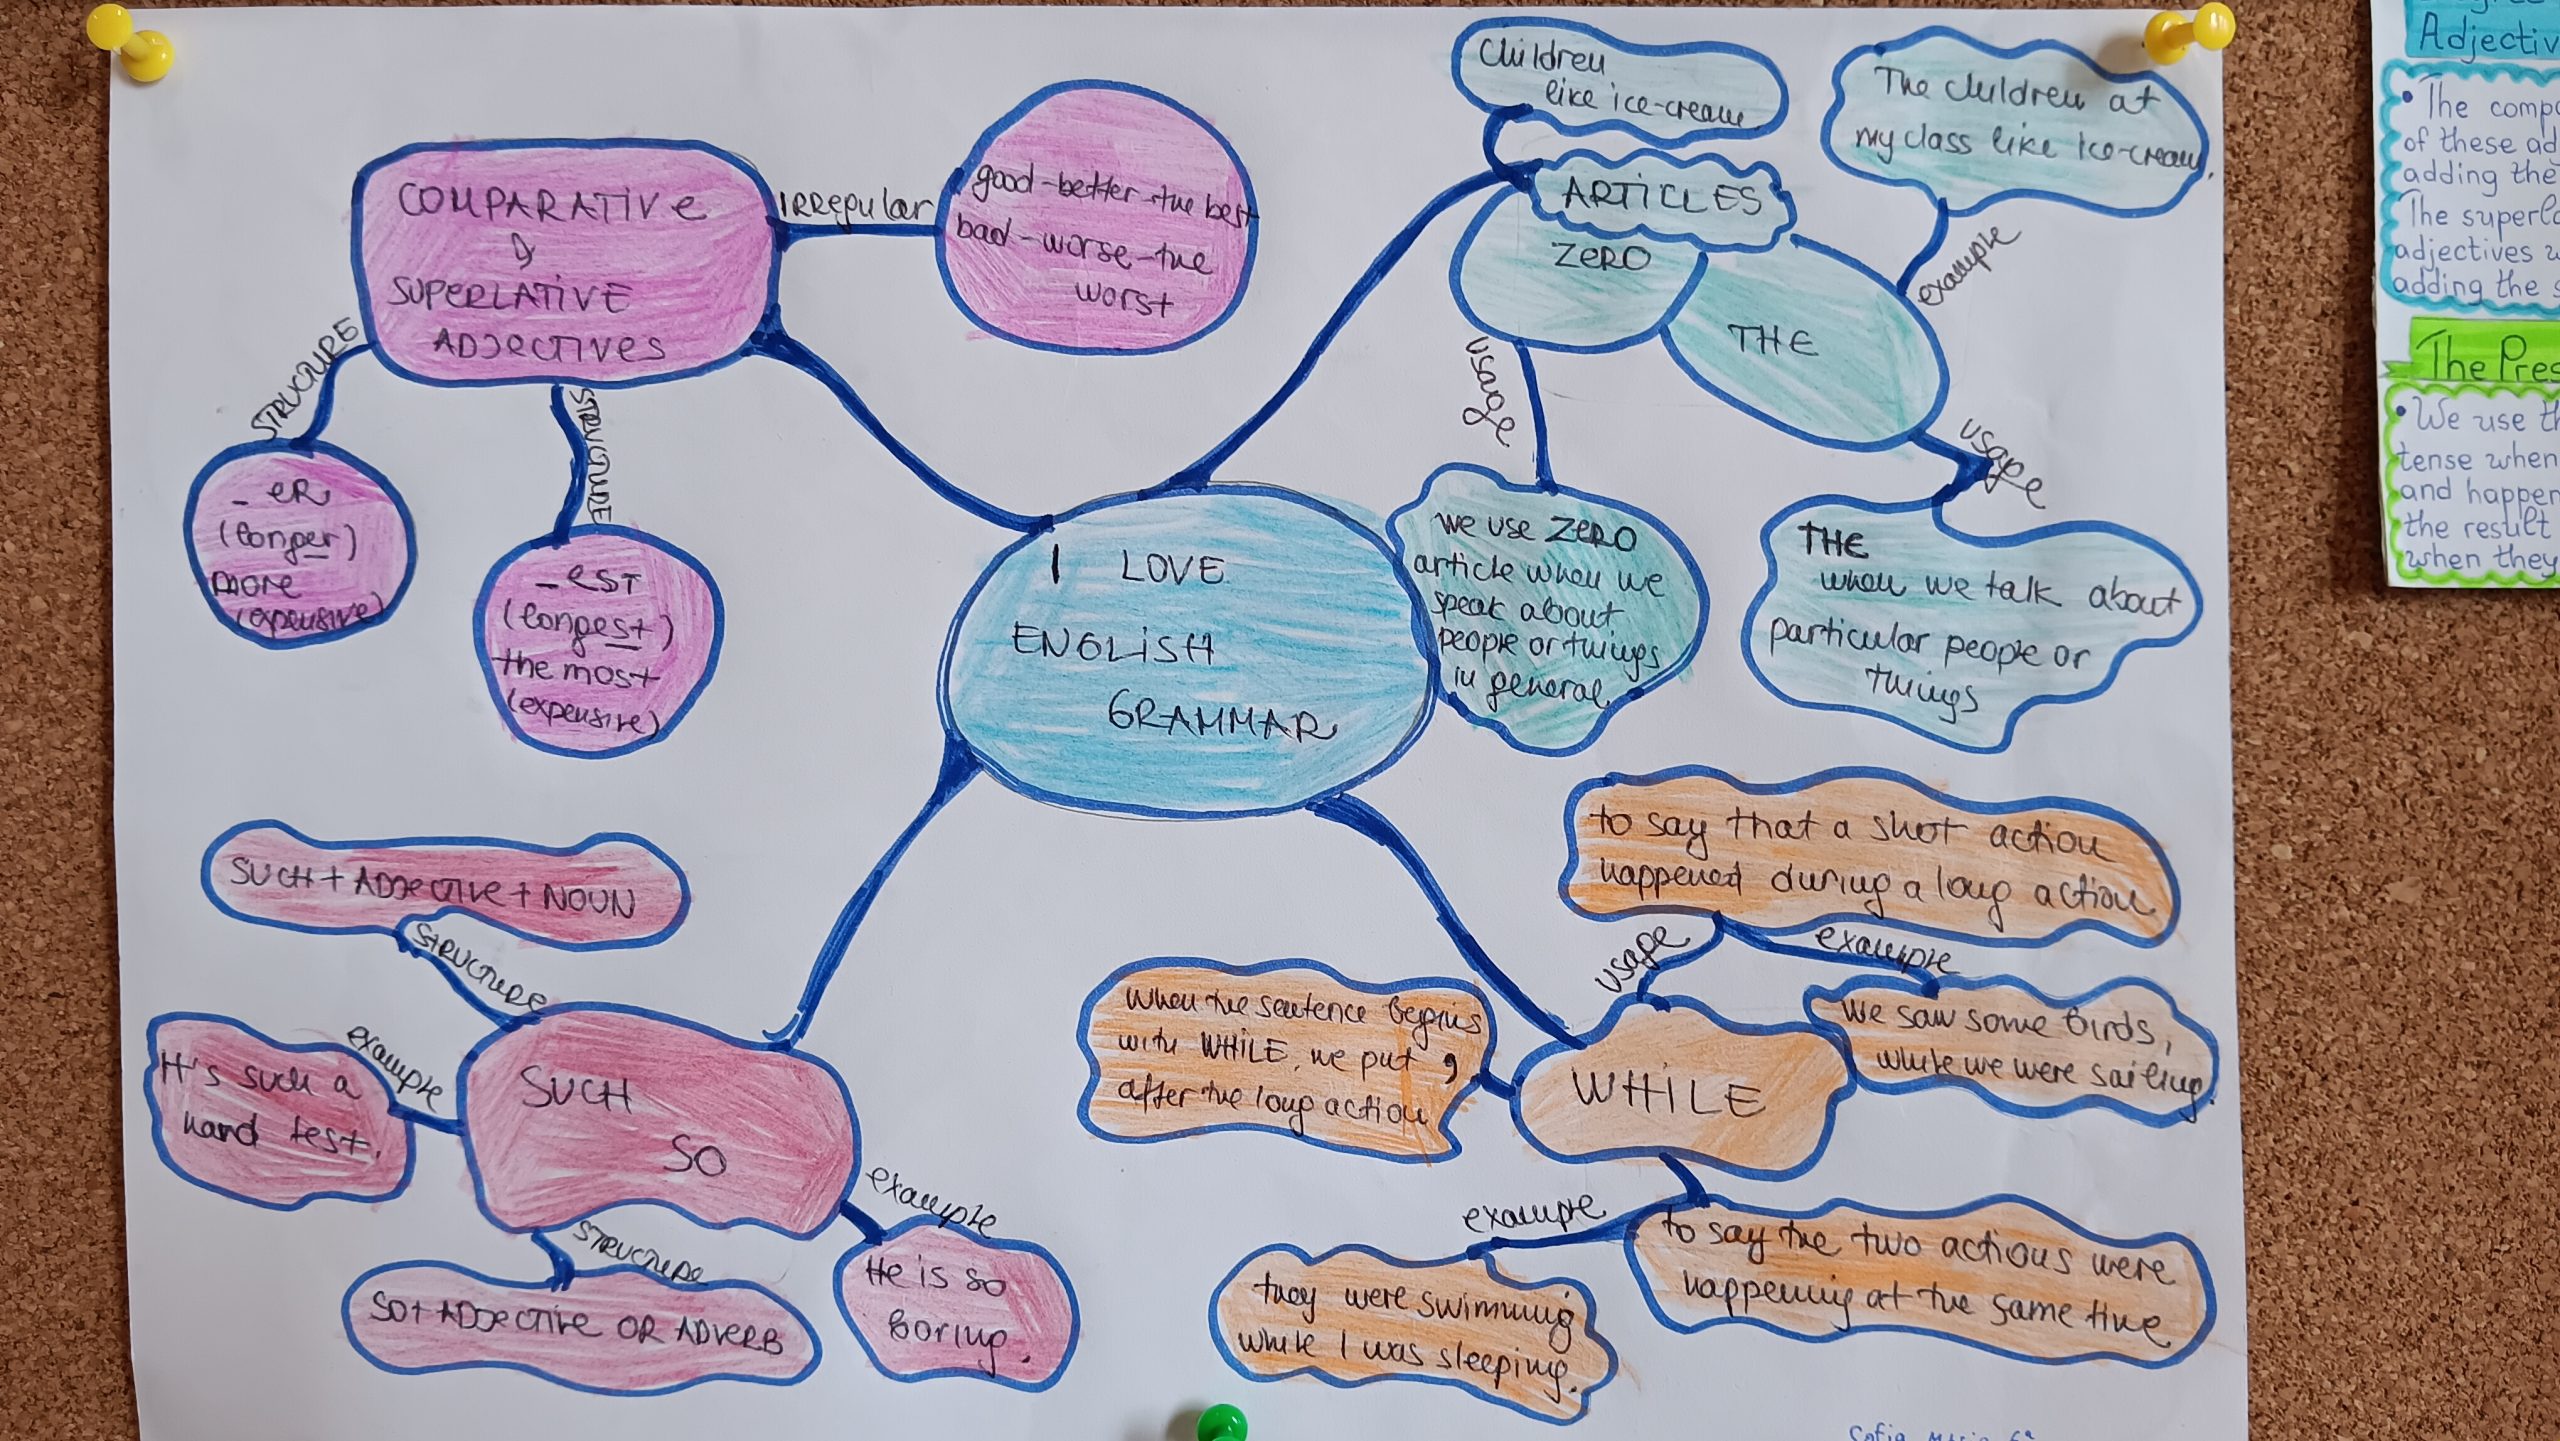 COMPARATIVE
&
SUPERLATIVE
ADJECTIVES
IRREGULAR
good-better-the best
bad-worse-the
worst
STRUCTURE
_ER
(longer)
more
(expensive)
STRUCTURE
_EST
(longest)
the most
(expensive)
I LOVE
ENGLISH
GRAMMAR
Children
like ice-cream
ARTICLES
ZERO
THE
example
The children at
my class like ice-cream.
usage
we use ZERO
article when we
speak about
people or things
in general
usage
THE
when we talk about
particular people or
things
SUCH + ADJECTIVE + NOUN
STRUCTURE
example
It's such a
hard test.
SUCH
SO
STRUCTURE
SO+ ADJECTIVE OR ADVERB
example
He is so
boring.
to say that a shot action
happened during a long action
usage
example
We saw some birds,
while we were sailing.
When the sentence begins
with WHILE, we put ,
after the long action
WHILE
example
they were swimming
while I was sleeping.
to say the two actions were
happening at the same time
Sofia
Adjectiv
• The comp
of these ad
adding the
The superla
adjectives w
adding the s
The Pres
• We use th
tense when
and happen
the result
when they